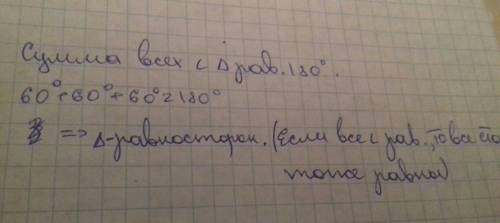 Сумма всех < Δ рав. 180°.
60°+60°+60°=180°
=> Δ-равносторон. (Если все < рав., то все сто
тоже равны)